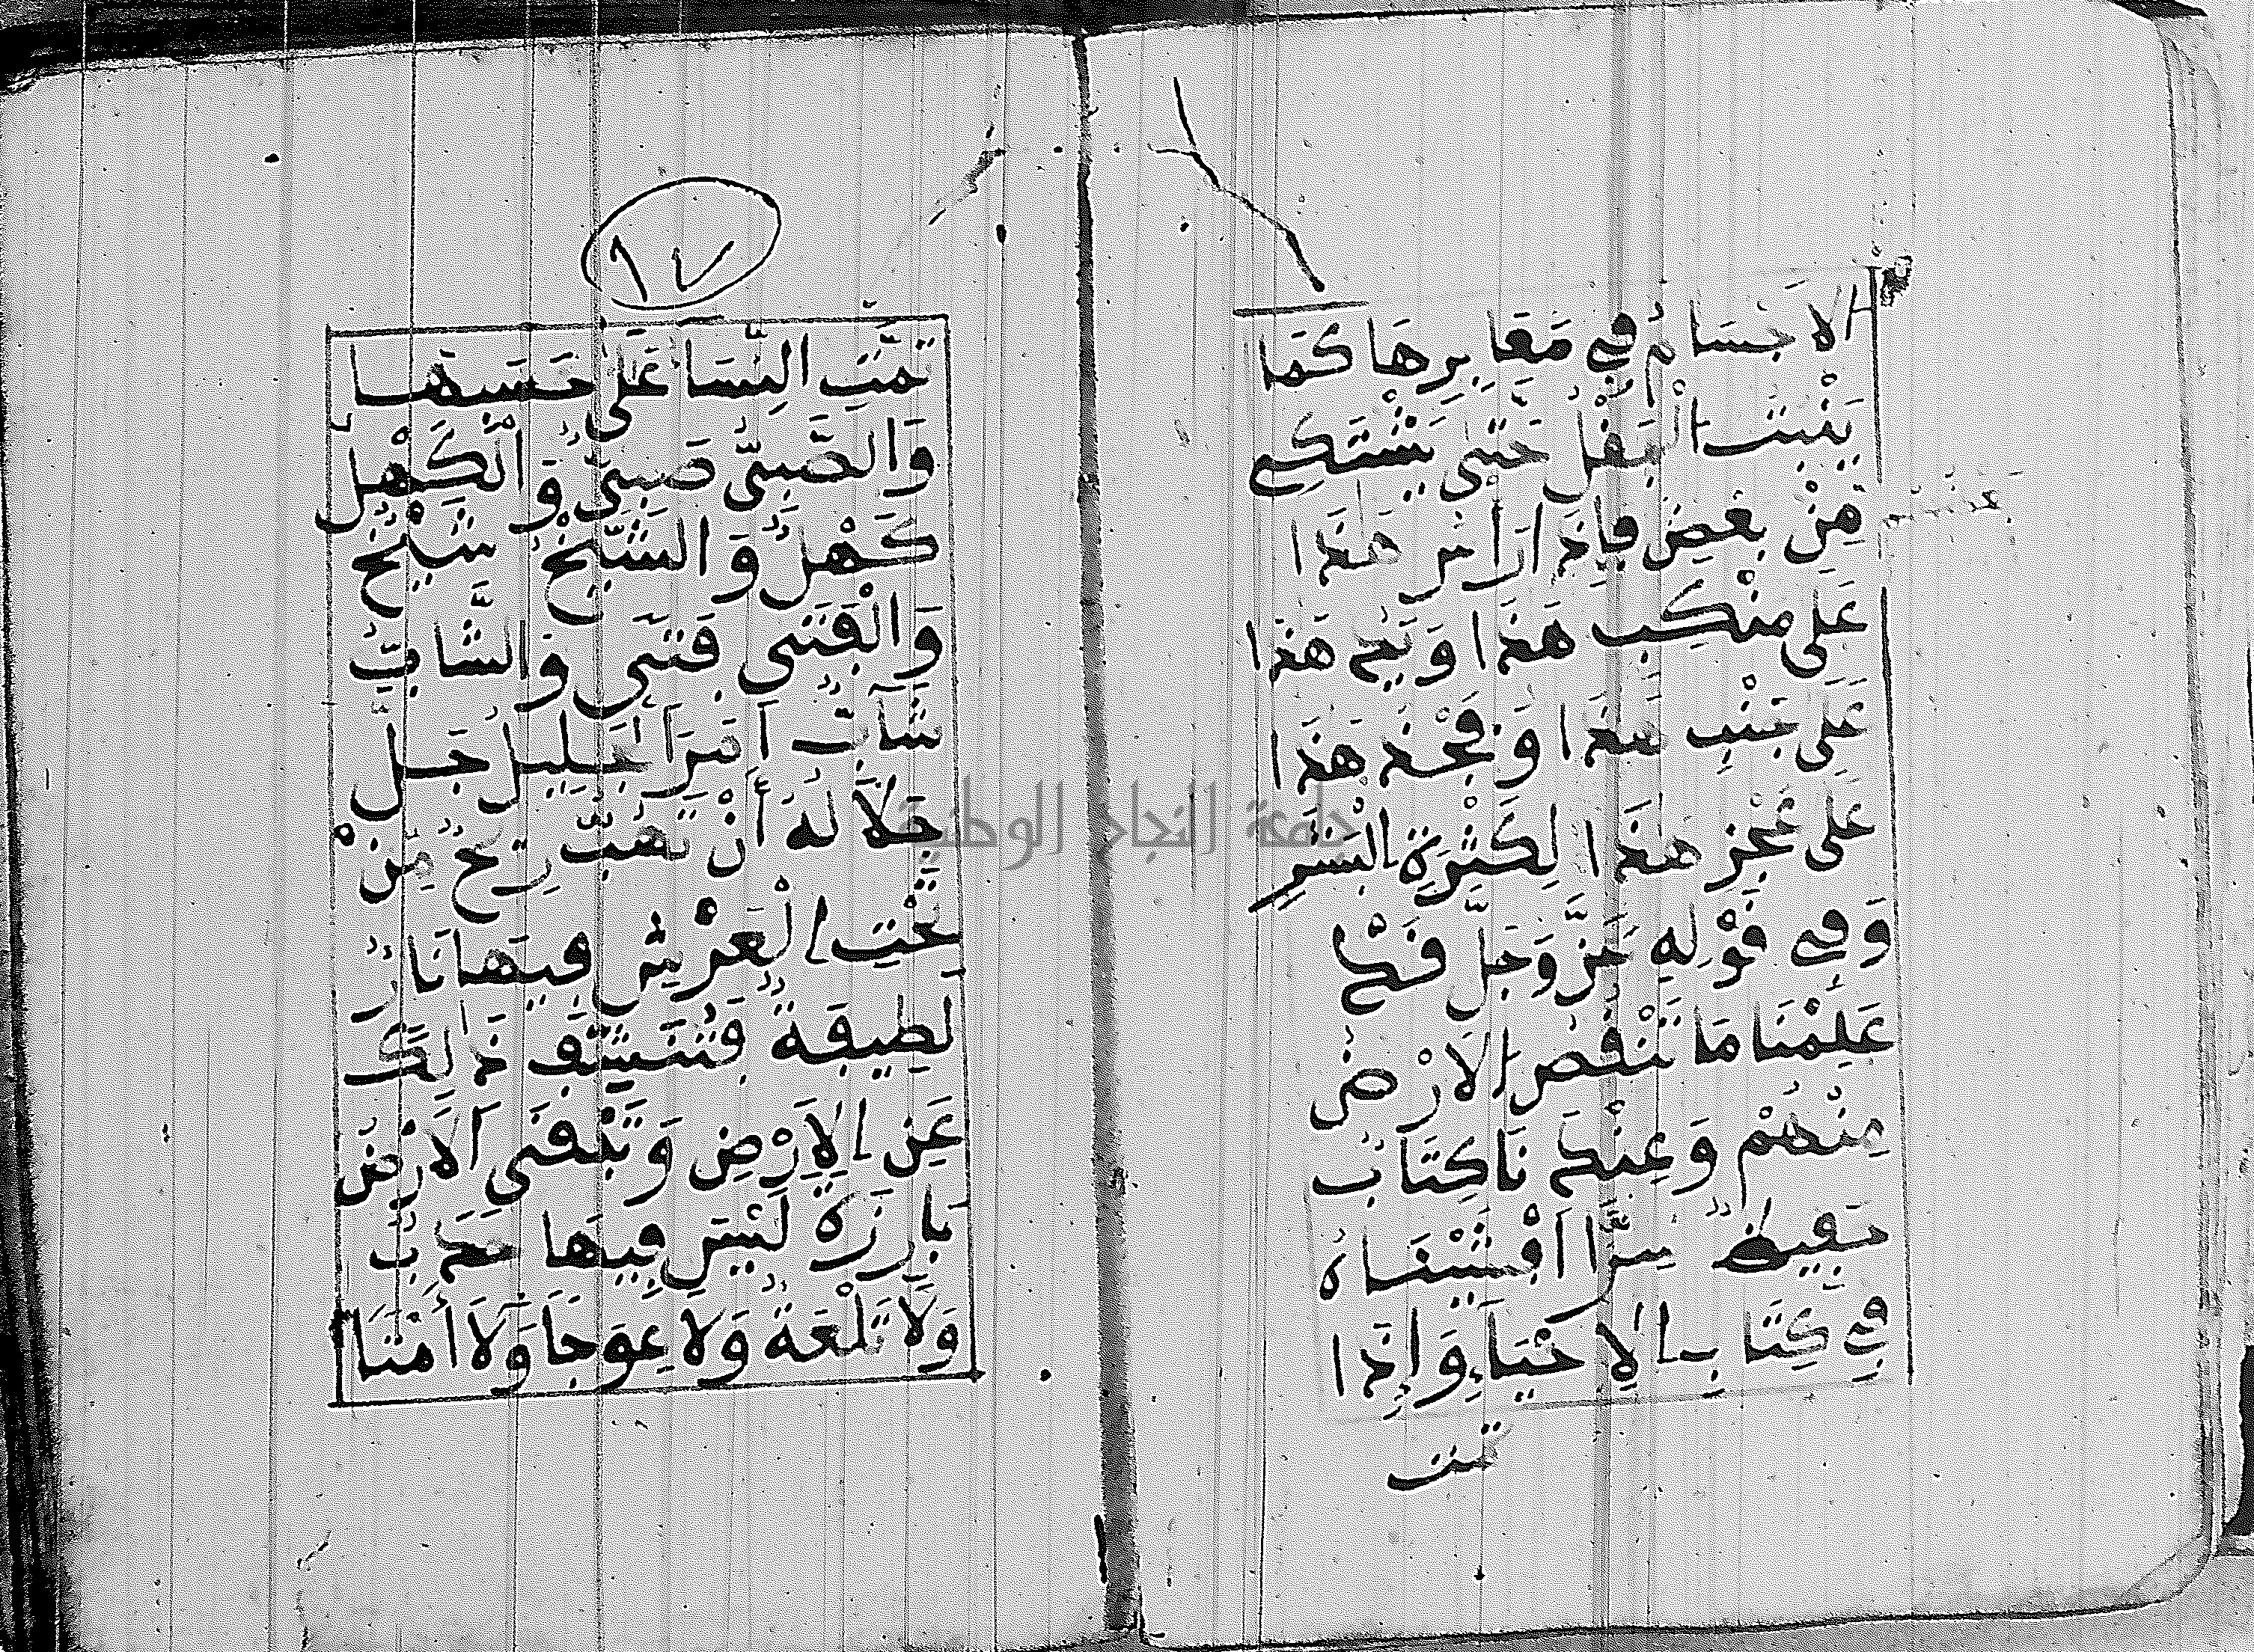 الاَجْسَامُ فِي مَقَابِرِهَا كَمَا
يَنْبُتُ الْبَقْلُ حَتَّى يَشْتَكِي
مِنْ بَعْضٍ فَإِذَا رَأْسُ هَذَا
عَلَى مَنْكِبِ هَذَا وَيَدُ هَذَا
عَلَى جَنْبِ هَذَا وَفَخْذُ هَذَا
عَلَى عَجْزِ هَذَا لِكَثْرَةِ الْبَشَرِ
وَفِي قَوْلِهِ عَزَّ وَجَلَّ قَدْ
عَلِمْنَا مَا تَنْقُصُ الاَرْضُ
مِنْهُمْ وَعِنْدَنَا كِتَابٌ
حَفِيظٌ سِرًّا اَفْشَيْنَاهُ
فِي كِتَابِ الاِحْيَاءِ وَإِذَا
تمت
١٧
تَمَّتِ النِّشَا عَلَى حَسَبِهَا
وَالصَّبِيُّ صَبِيٌّ وَالْكَهْلُ
كَهْلٌ وَالشَّيْخُ شَيْخٌ
وَالْفَتَى فَتًى وَالشَّابُّ
شَابٌّ اَمَرَ الْجَلِيلُ جَلَّ
جَلاَلُهُ أَنْ تَهُبَّ رِيحٌ مِنْ
تَحْتِ الْعَرْشِ فِيهَا نَارٌ
لَطِيفَةٌ فَتَنْشِفُ ذَالِكَ
عَنِ الاَرْضِ وَتَبْقَى الاَرْضُ
بَارِزَةً لَيْسَ فِيهَا حَدَبٌ
وَلاَ تَلْعَةٌ وَلاَ عِوَجًا وَلاَ أَمْتًا
جامعة النجاح الوطنية